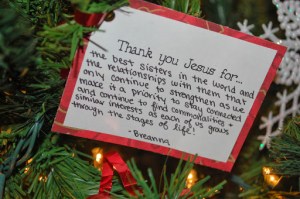 Thank you Jesus for...
the best sisters in the world and
the relationships with them that
only continue to strengthen as we
make it a priority to stay connected
and continue to find commonalities +
similar interests as each of us grows
through the stages of life!
- Breanna